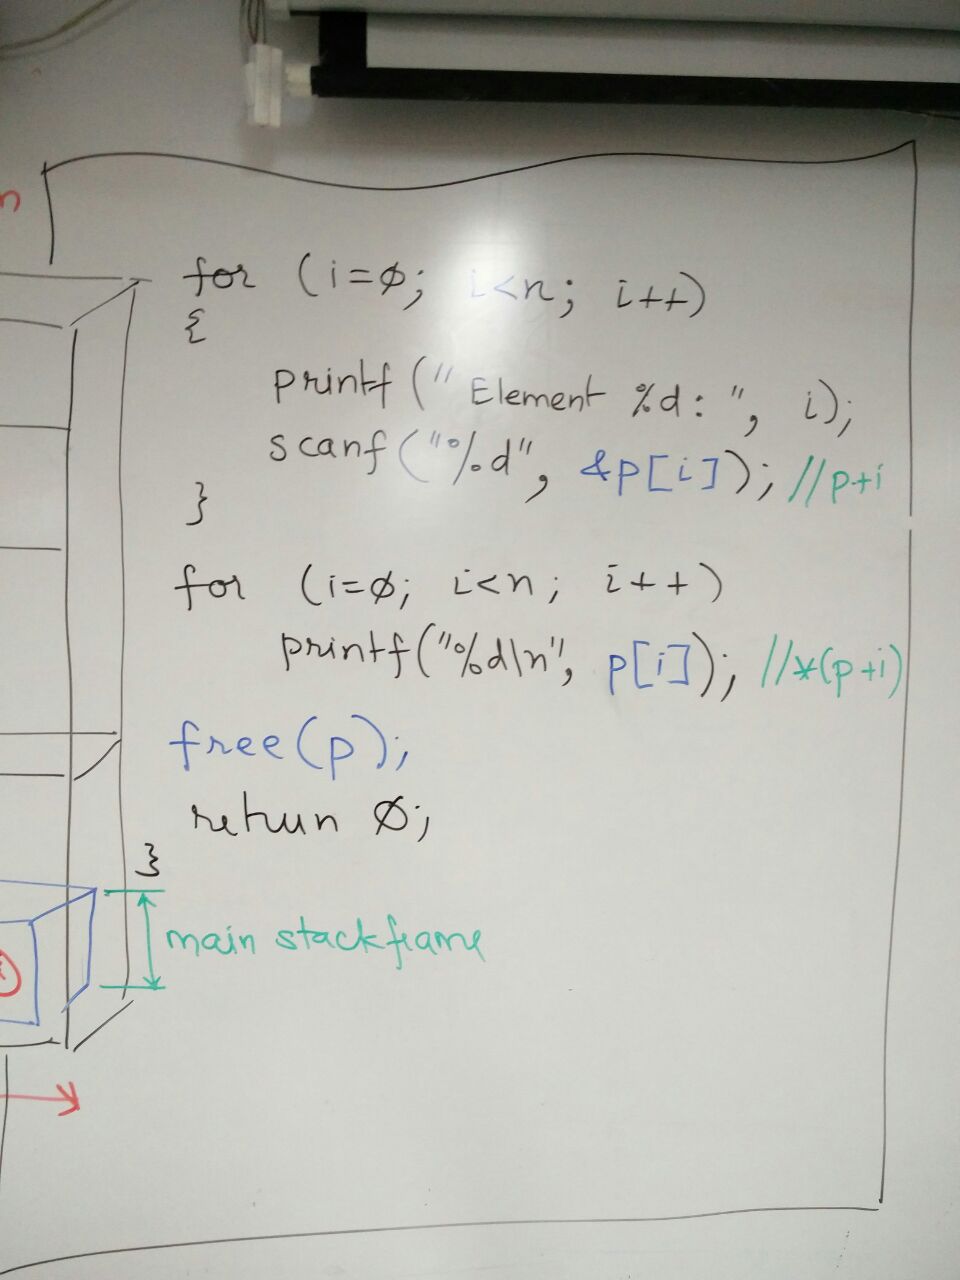 for (i=ø; i<n; i++)
{
printf (" Element %d: ", i);
scanf ("%d", &p[i]); //p+i
}
for (i=ø; i<n; i++)
printf("%d\n", p[i]); //*(p+i)
free(p);
return ø;
}
main stackframe